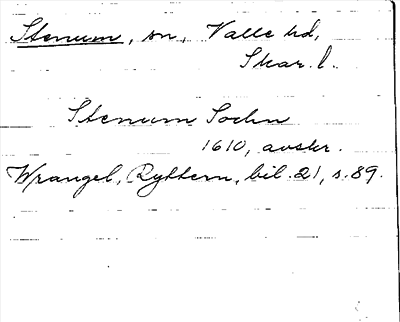 Stenum, sn, Valle hd,
Skar. l.
Stenum Sochn
1610, avskr.
Wrangel, Ryttern, bil. 21, s. 89.